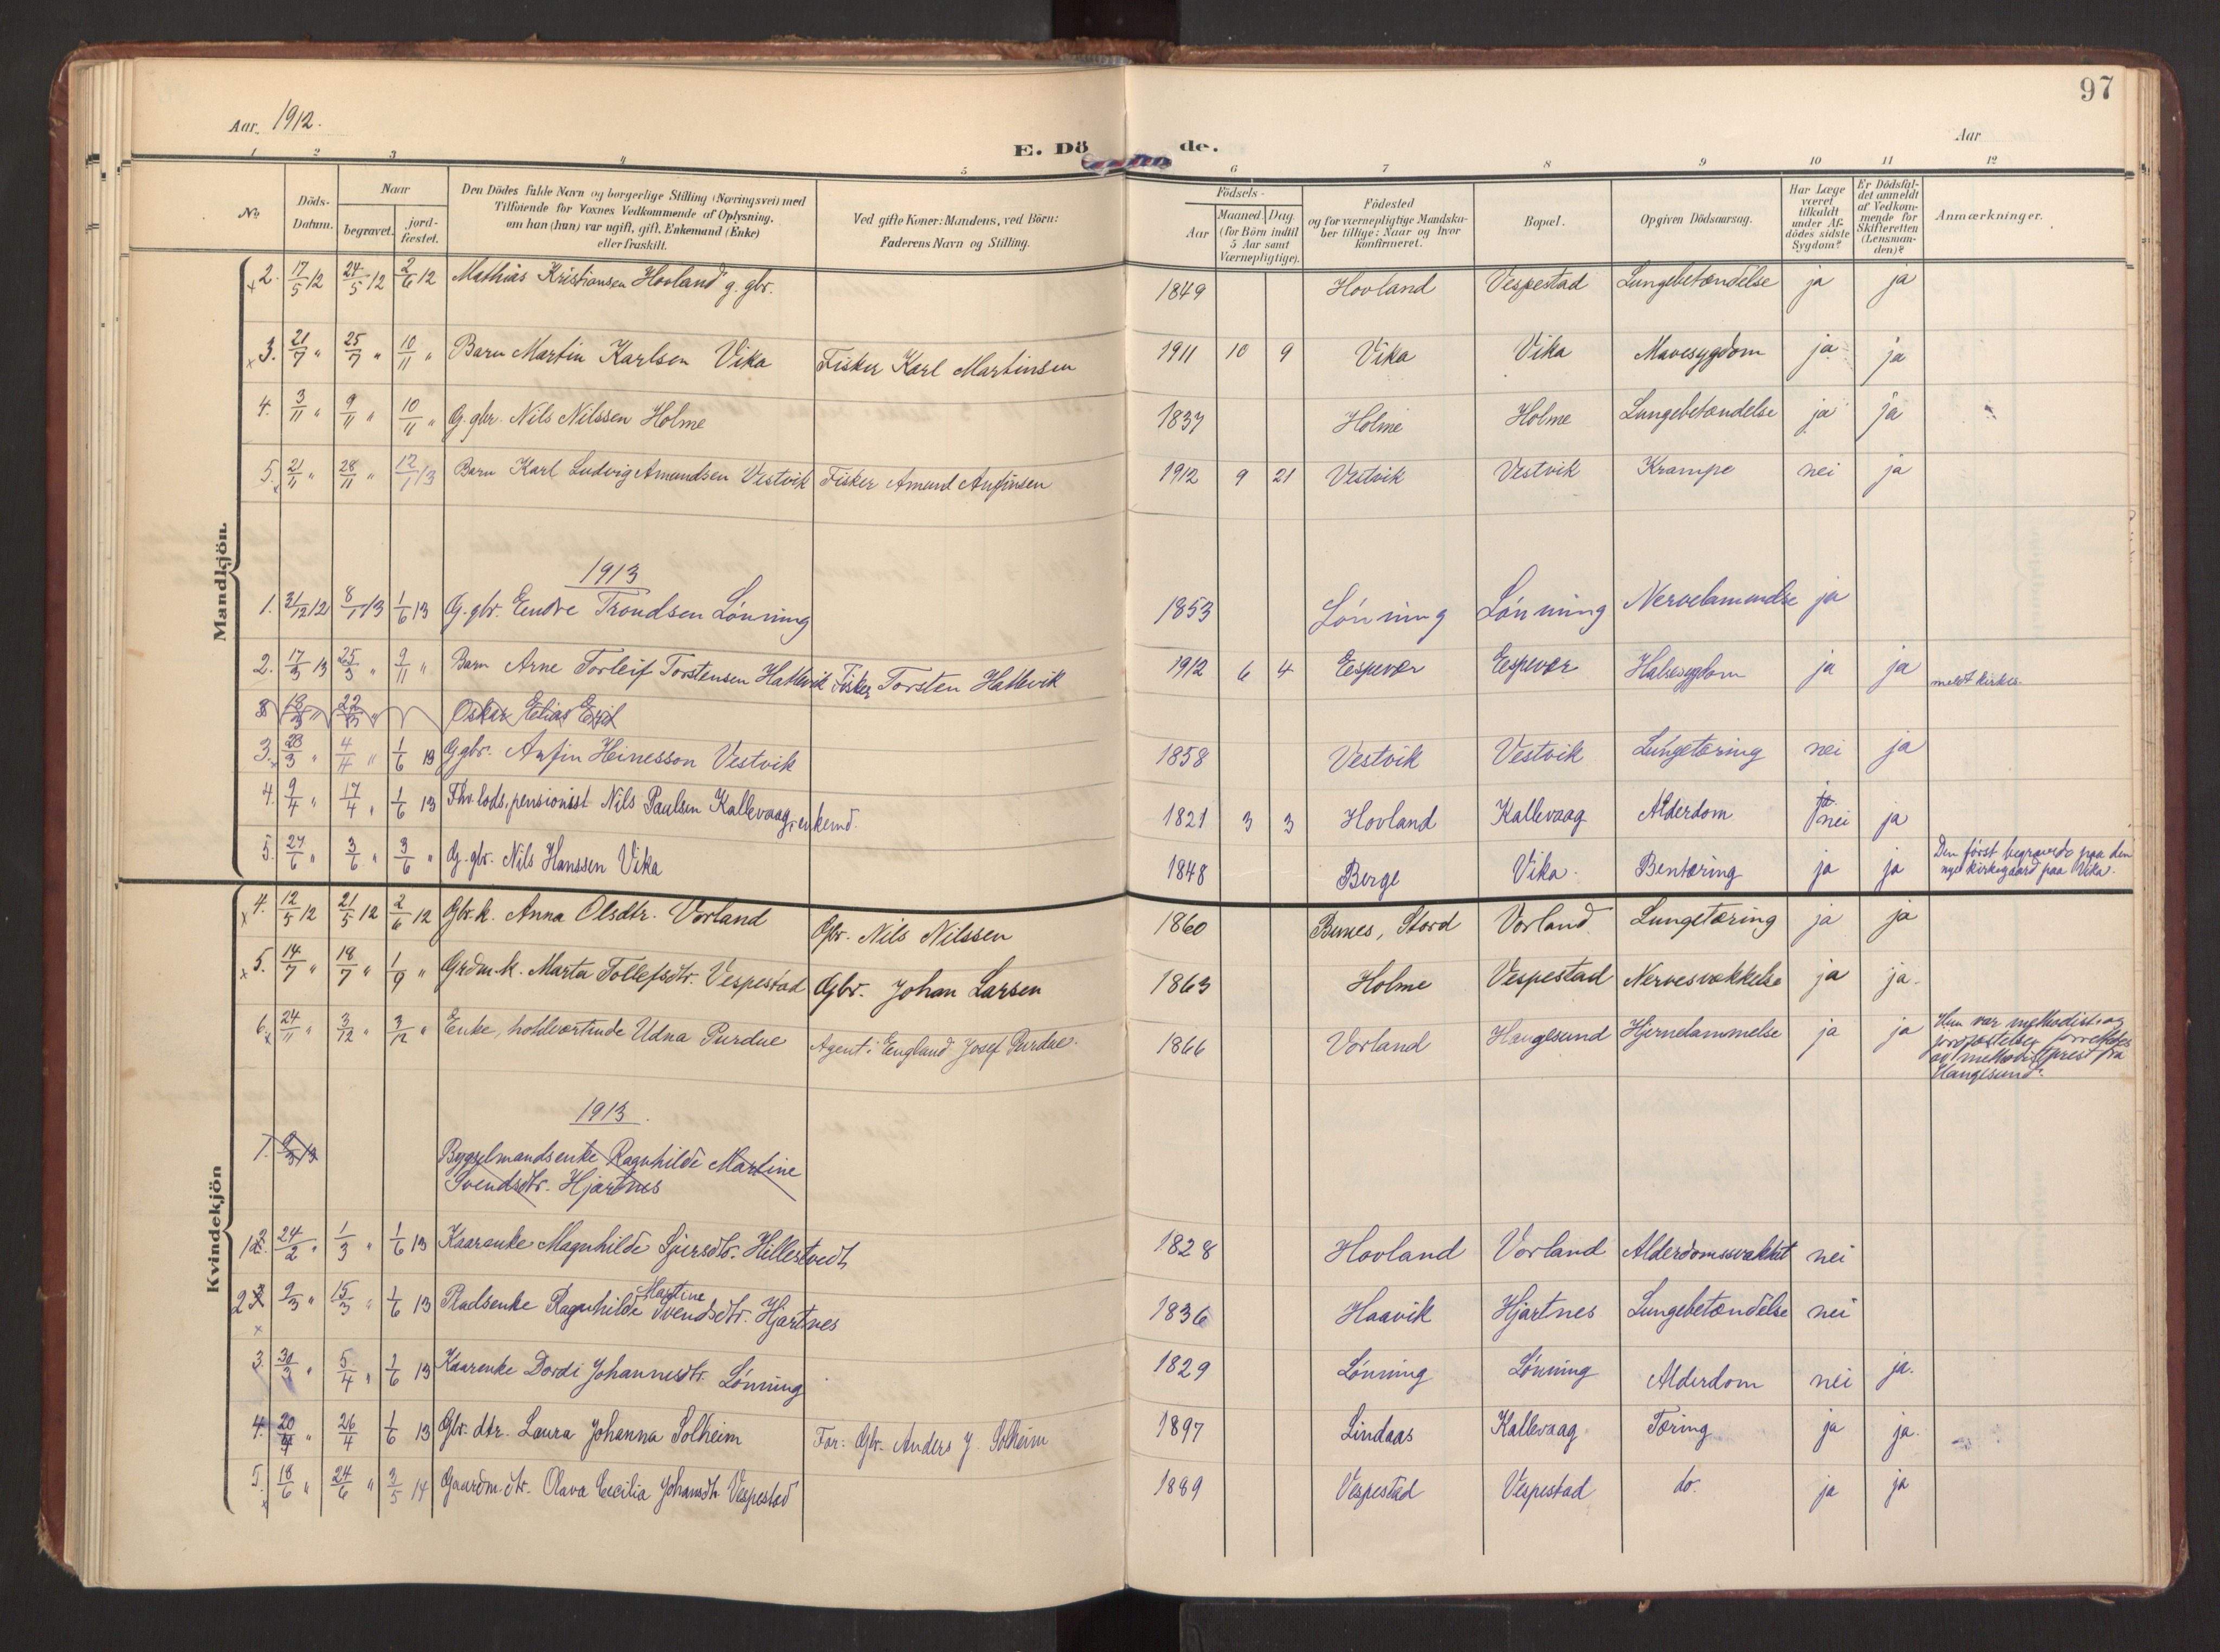 97
Aar 1912.
Aar
E. Dö de.
1 2 3 4 5 6 7 8 9 10 11 12
No
Döds-Datum.
Naar
begravet.
jord-fæstet.
Den Dödes fulde Navn og borgerlige Stilling (Næringsvei) med
Tilföiende for Voxnes Vedkommende af Oplysning,
om han (hun) var ugift, gift, Enkemand (Enke)
eller fraskilt.
Ved gifte Koner: Mandens, ved Börn:
Faderens Navn og Stilling.
Födsels-
Aar
Maaned. Dag
(for Börn indtil
5 Aar samt
Værnepligtige).
Födested
og for værnepligtige Mandska-
ber tillige: Naar og hvor
konfirmeret.
Bopæl.
Opgiven Dödsaarsag.
Har Læge
været
tilkaldt
under Af-
dödes sidste
Sygdom?
Er Dödsfal-
det anmeldt
af Vedkom-
mende for
Skifteretten
(Lensman-
den)?
Anmærkninger.
Mandkjön.
x2. 17/5 12 24/5 12 2/6 12 Mathias Kristiansen Hovland g. gbr. 1849 Hovland Vespestad Lungebetændelse ja ja
x3. 21/7 " 25/7 " 10/11 " Barn Martin Karlsen Vika Fisker Karl Martinsen 1911 10 9 Vika Vika Mavesygdom ja ja
4. 3/11 " 9/11 " 10/11 " G. gbr. Nils Nilssen Holme 1837 Holme Holme Lungebetændelse ja ja
5.x 21/11 " 28/11 " 12/1 13 Barn Karl Ludvig Amundsen Vestvik Fisker Amund Anfinsen 1912 9 21 Vestvik Vestvik Krampe nei ja
1913
1. 31/12 12 8/1 13 1/6 13 G. gbr. Endre Trondsen Lönning 1853 Lönning Lönning ja
2. 17/3 13 25/3 " 9/11 " Barn Arne Torleif Torstensen Hattevik Fisker Torsten Hattevik 1912 6 4 Espevær Espevær Halssygdom ja ja meldt kirkes.
Oskar Elias
3.x 28/3 " 4/4 " 1/6 13 G gbr. Anfin Heinesson Vestvik 1858 Vestvik Vestvik Lungetæring nei ja
4. 9/4 " 17/4 " 1/6 13 Fhv. lods, pensionist Nils Paulsen Kallevaag, enkemd. 1821 3 3 Hovland Kallevaag Alderdom nei ja
5. 27/6 " 3/6 " 3/6 " G. gbr. Nils Hanssen Vika 1848 Berge Vika. Bentæring ja ja Den först begravede paa den
nye kirkegaard paa Vika.
Kvindekjön
x4. 12/5 12 21/5 12 2/6 12 Gbr.k. Anna Olsdtr. Vorland Gbr. Nils Nilssen 1860 Stord Vorland Lungetæring ja ja
x5. 14/7 " 18/7 " 1/9 " Grdm.k. Marta Tollefsdtr. Vespestad Gbr. Johan Larsen 1863 Holme Vespestad Nervesvækkelse ja ja.
6.x 24/11 " 3/12 " 3/12 " Enke, Udna Purdue Agent i England Josef Purdue. 1866 Vorland Haugesund Hjernelammelse ja ja Hun var methodist og
jordfæstelsen forrettedes
av methodistprest fra
Haugesund.
1913.
1. 9/3 13 Bygselmandsenke Ragnhilde Martine
Svendsdtr. Hjartnes
1 24/2 " 1/3 " 1/6 13 Kaarenke Magnhilde Sjursdtr. Hillestvedt 1828 Hovland Vorland Alderdomssvækket nei
2 x 9/3 " 15/3 " 1/6 13 Pladsenke Ragnhilde Martine Svendsdtr. Hjartnes 1836 Haavik Hjartnes Lungebetændelse nei
3. 30/3 " 5/4 " 1/6 13 Kaarenke Dordi Johannesdtr. Lönning 1829 Lönning Lönning Alderdom nei ja.
4. 20/4 " 26/4 " 1/6 13 Gbr. dtr. Laura Johanna Solheim Far: Gbr. Anders J. Solheim 1897 Lindaas Kallevaag Tæring ja ja.
5.x 18/6 " 24/6 " 3/5 14 Gaardm.dtr. Olava Cecilia Johansdtr. Vespestad 1889 Vespestad Vespestad do. ja ja